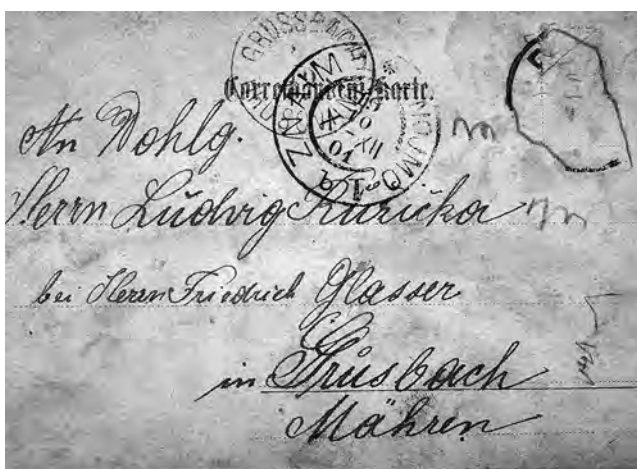 GRUSSBACH
ZNAIM
ZNOJMO
10
XII
01
Correspondenz-Karte.
An Wohlg.
Herrn Ludvig Ružička
bei Herrn Friedrich Glasser
in Grusbach
Mähren